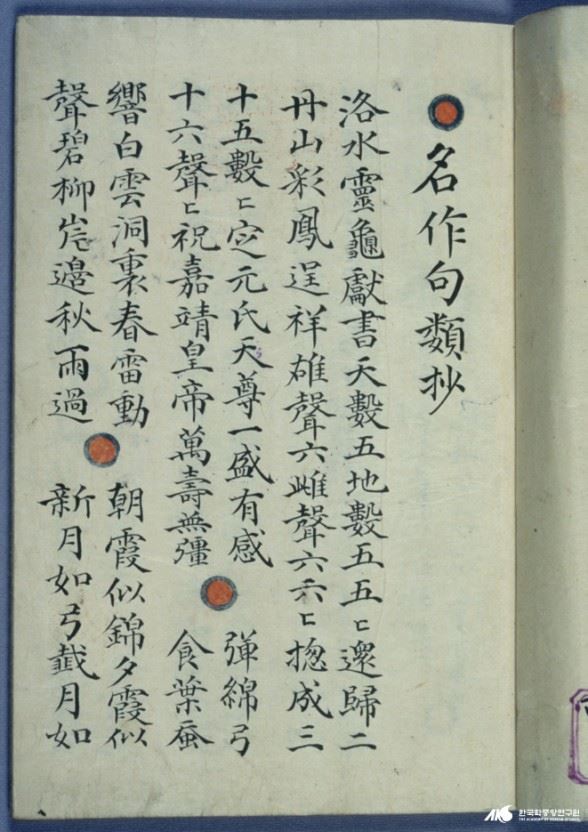 名作句類抄
洛水靈龜獻書天數五地數五五ㄷ還歸二
丹山彩鳳逞祥雄聲六雌聲六六ㄷ揔成三
十五數ㄷ定元氏天尊一盛有感 彈綿弓
十六聲ㄷ祝嘉靖皇帝萬壽無彊 食葉蚕
響白雲洞裏春雷動 朝霞似錦夕霞似
聲碧柳岸邊秋雨過 新月如弓月如
한국학중앙연구원
THE ACADEMY OF KOREAN STUDIES